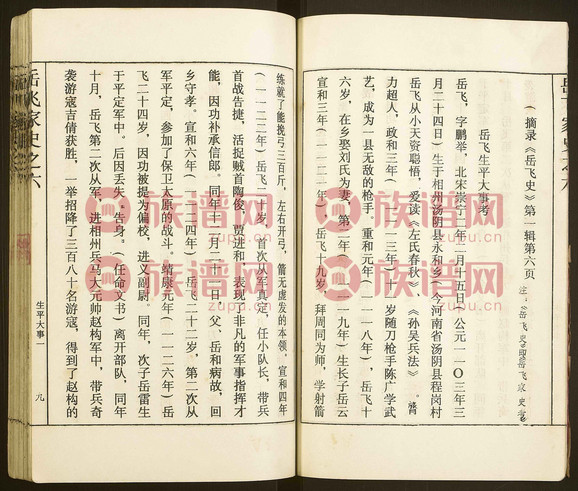 (摘录《岳飞史》第一辑第六页
注:《岳飞史》即岳飞家史考
岳飞生平大事考
岳飞,字鹏举,北宋崇宁二年二月十五日(公元一一〇三年三
月二十四日)生于相州汤阴县永和乡(今河南省汤阴县程岗村
岳飞从小天资聪悟,爱读《左氏春秋》、《孙吴兵法》。
力超人,政和三年(一一一三年)十一岁随刀枪手陈广学武
艺,成为一县无敌的枪手。重和元年(一一一八年),岳飞十
六岁,在乡娶刘氏为妻,第二年(一一一九年)生长子岳云
宣和三年(一一二一年),岳飞十九岁,拜周同为师,学射箭
练就了能挽弓三百斤,左右开弓,箭无虚发的本领,宣和四年
(一一二二年)岳飞二十岁,首次从军真定,任小队长,带兵
首战告捷,活捉贼首陶俊、贾进和,表现了非凡的军事指挥才
能,因功补承信郎。同年十二月二十一日,父、岳和病故,回
乡守孝。宣和六年(一一二四年)岳飞二十二岁,第二次从
军平定,参加了保卫太原的战斗。靖康元年(一一二六年)岳
飞二十四岁,因功被提为偏校,进义副尉。同年,次子岳雷生
于平定军中。后因丢失“告身”(任命文书)离开部队,同年
十月,岳飞第三次从军,进相州兵马大元帅赵构军中,带兵奇
袭游寇吉倩获胜,一举招降了三百八十名游寇,得到了赵构的
岳飞家史之六
生平大事一
九
族谱网
www.zupu.cn